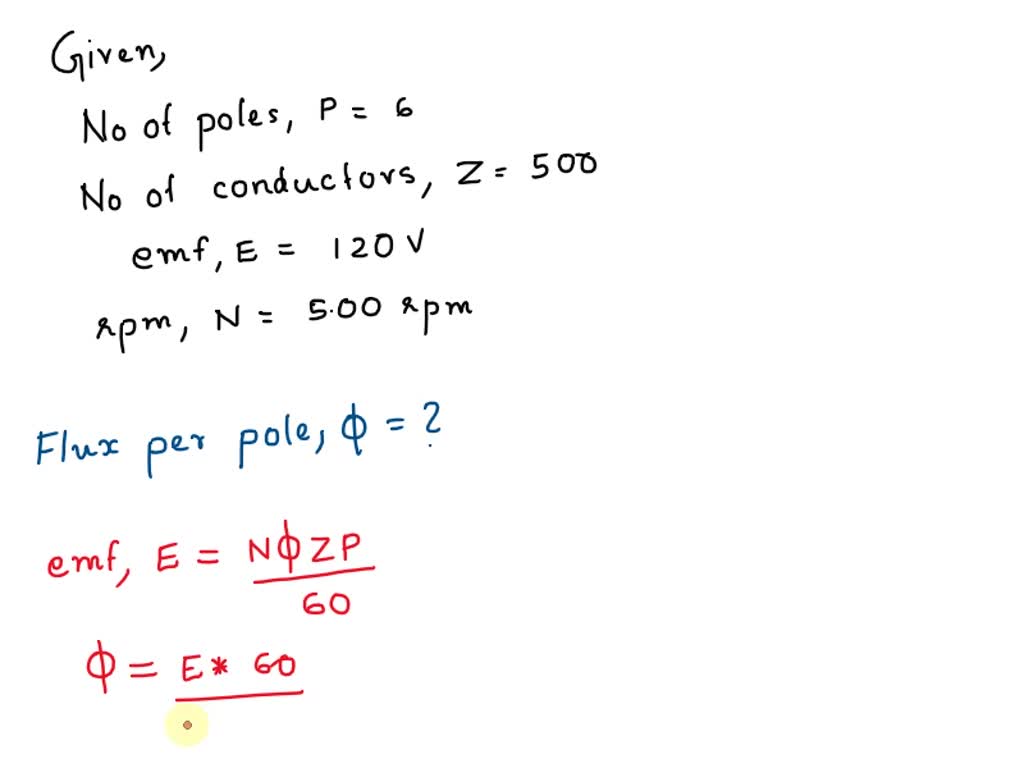 Given,
No of poles, P = 6
No of conductors, Z = 500
emf, E = 120 V
rpm, N = 5.00 rpm
Flux per pole, ϕ = ?
emf, E = NϕZP
60
ϕ = E* 60